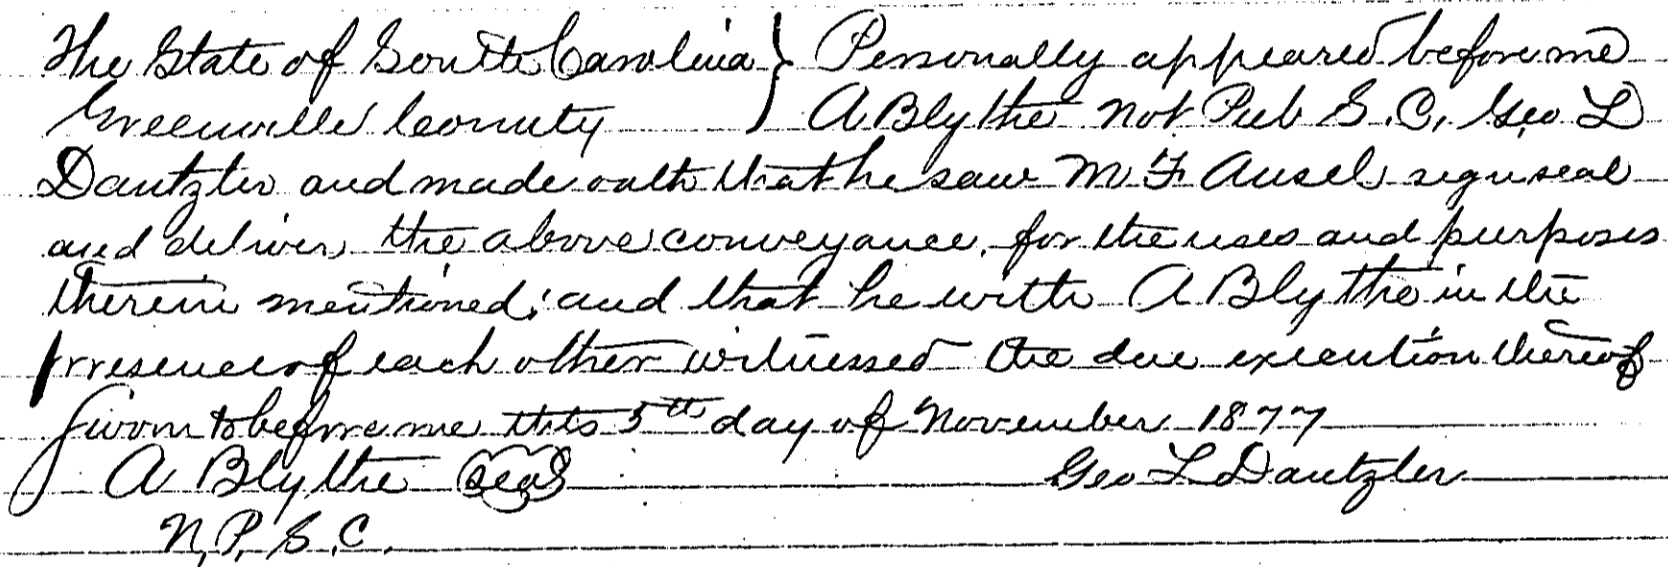 The State of South Carolina } Personally appeared before me
Greenville County } A Blythe Not Pub S.C, Geo L
Dantzler and made oath that he saw M F Ansel sign seal
and deliver the above conveyance, for the uses and purposes
therein mentioned; and that he with A Blythe in the
presence of each other witnessed the due execution thereof
Sworn to before me this 5th day of November 1877
A Blythe (seal) Geo L Dantzler
N, P, S, C.